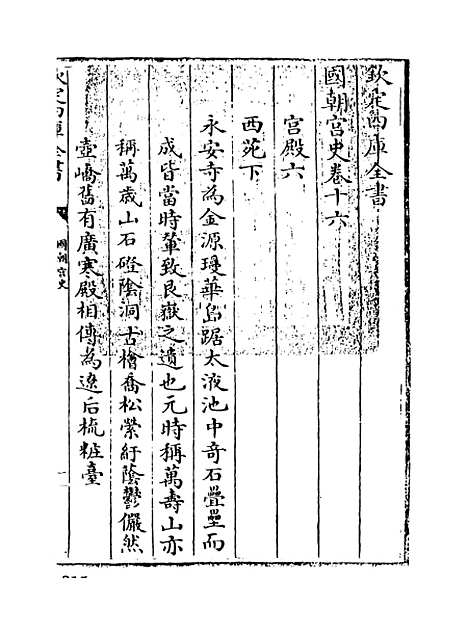 欽定四庫全書
國朝宮史卷十六
宮殿六
西苑下
永安寺為金源瓊華島踞太液池中奇石疊壘而
成皆當時輦致艮嶽之遺也元時稱萬壽山亦
稱萬歲山石磴陰洞古檜喬松縈紆蔭鬱儼然
壺嶠舊有廣寒殿相傳為遼后梳粧臺
欽定四庫全書
國朝宮史
一